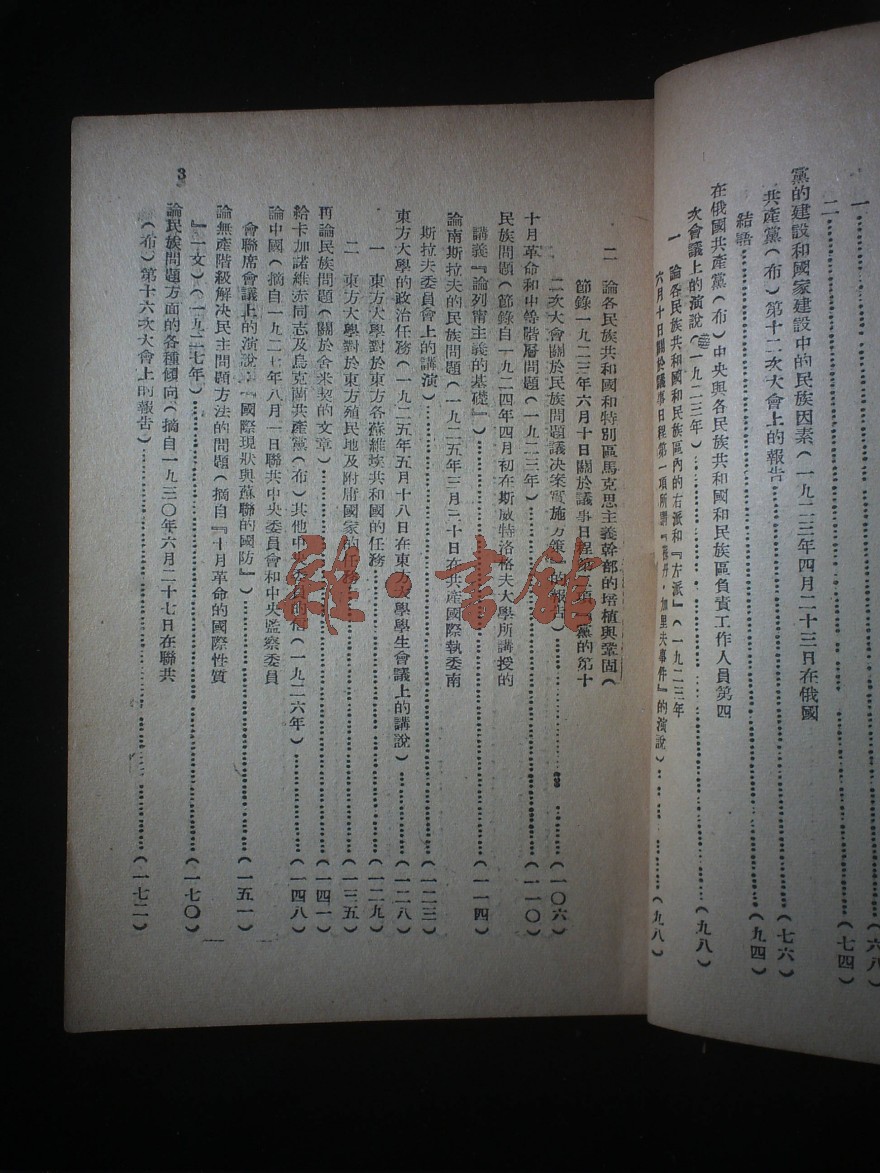 一……(六八)
二……(七四)
黨的建設和國家建設中的民族因素(一九二三年四月二十三日在俄國
共產黨(布)第十二次大會上的報告……(七六)
結語……(九四)
在俄國共產黨(布)中央與各民族共和國和民族區負責工作人員第四
次會議上的演說(一九二三年)……(九八)
一 論各民族共和國和民族區內的右派和『左派』(一九二三年
六月十日關於議事日程第一項所謂『蘇丹・加里夫事件』的演說)……(九八)
二 論各民族共和國和特別區馬克思主義幹部的培植與鞏固(
節錄一九二三年六月十日關於議事日程第二項『黨的第十
二次大會關於民族問題議决案實施方策』的報告)……(一〇六)
十月革命和中等階層問題(一九二三年)……(一一〇)
民族問題(節錄自一九二四年四月初在斯威特洛格夫大學所講授的
講義『論列甯主義的基礎』)……(一一四)
論南斯拉夫的民族問題(一九二五年三月三十日在共產國際執委南
斯拉夫委員會上的講演)……(一二三)
東方大學的政治任務(一九二五年五月十八日在東方大學學生會議上的講說)……(一二八)
一 東方大學對於東方各蘇維埃共和國的任務……(一二九)
二 東方大學對於東方殖民地及附庸國家的任務……(一三五)
再論民族問題(關於舍米契的文章)……(一四一)
給卡加諾維赤同志及烏克蘭共產黨(布)其他中央委員的信(一九二六年)……(一四八)
論中國(摘自一九二七年八月一日聯共中央委員會和中央監察委員
會聯席會議上的演說:『國際現狀與蘇聯的國防』)……(一五一)
論無產階級解决民主問題方法的問題(摘自『十月革命的國際性質
『一文)(一九二七年)……(一七〇)
論民族問題方面的各種傾向(摘自一九三〇年六月二十七日在聯共
(布)第十六次大會上的報告)……(一七二)
3
雜・書館